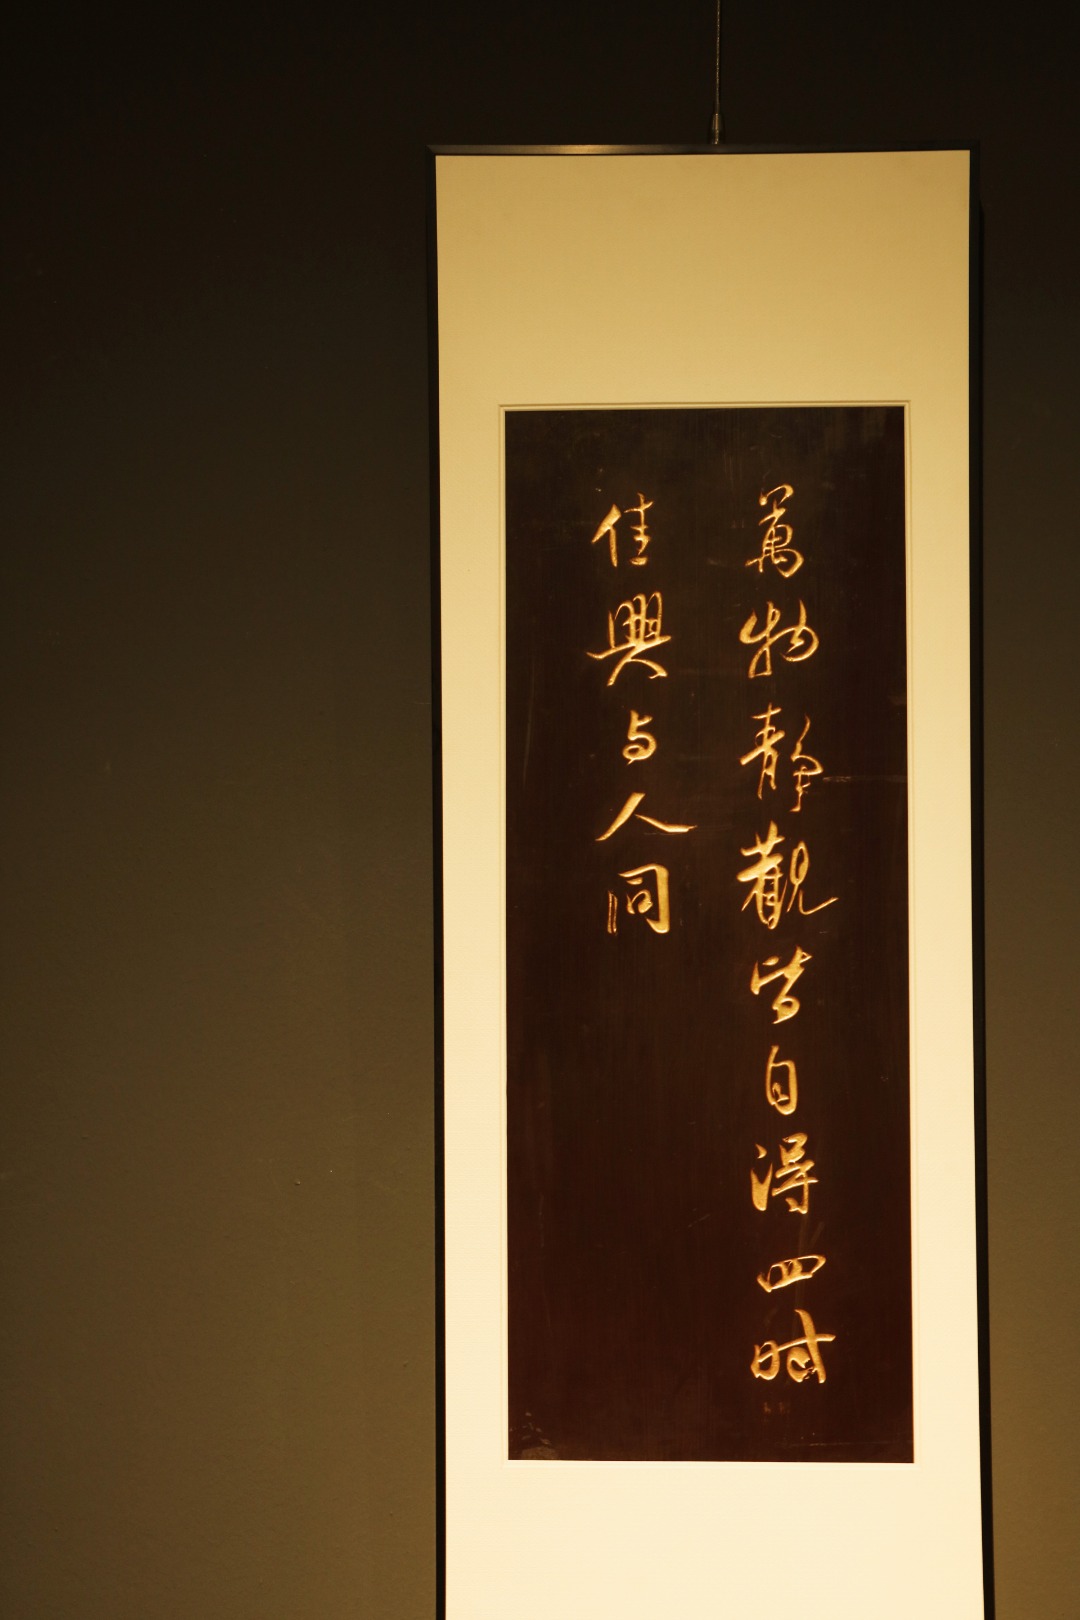 萬物靜觀皆自得四時
佳興与人同